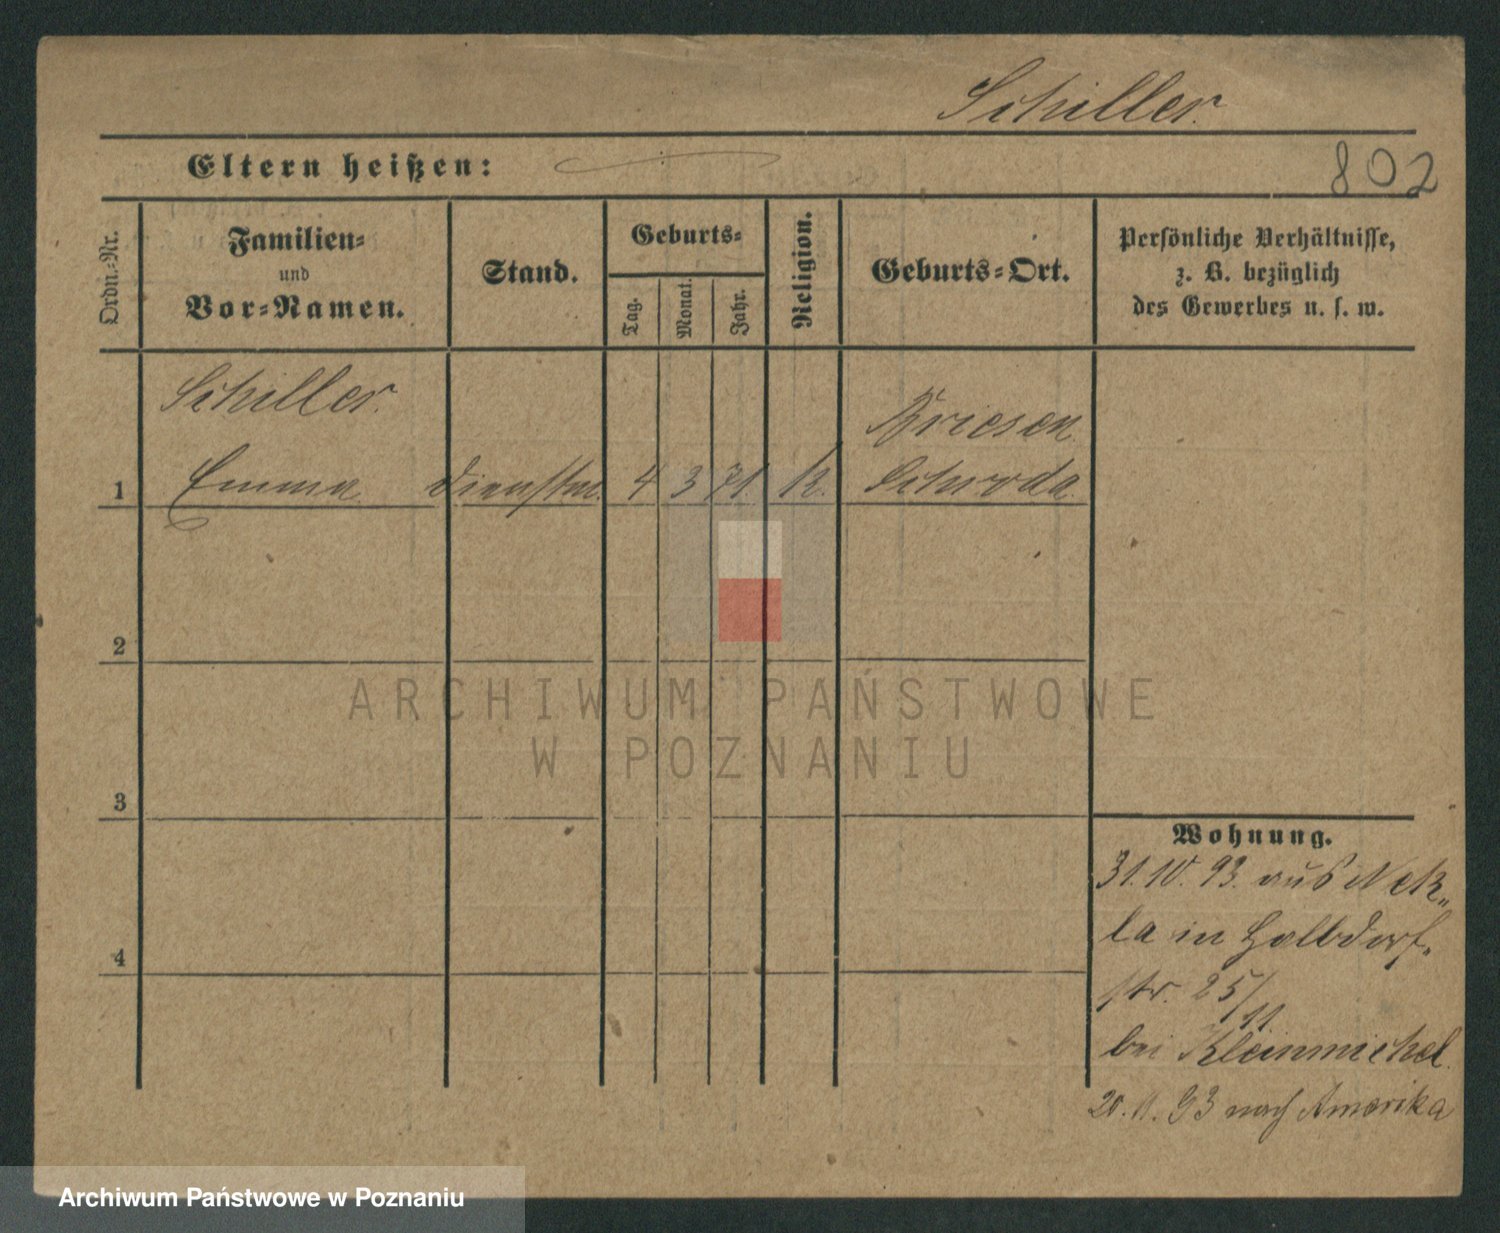 Schiller.
802
Eltern heißen:
Ordn.-Nr.
Familien-
und
Vor-Namen.
Stand.
Geburts-
Tag.
Monat.
Jahr.
Religion.
Geburts-Ort.
Persönliche Verhältnisse,
z. B. bezüglich
des Gewerbes u. s. w.
Schiller.
Briesen
1 Emma Dienstm. 4 3 71. k. Schroda
2
3
4
Wohnung.
31.10.93. aus Nek-
la in Halbdorf-
str. 25/11
bei Kleinmichel.
20.11.93 nach Amerika
ARCHIWUM PAŃSTWOWE
W POZNANIU
Archiwum Państwowe w Poznaniu